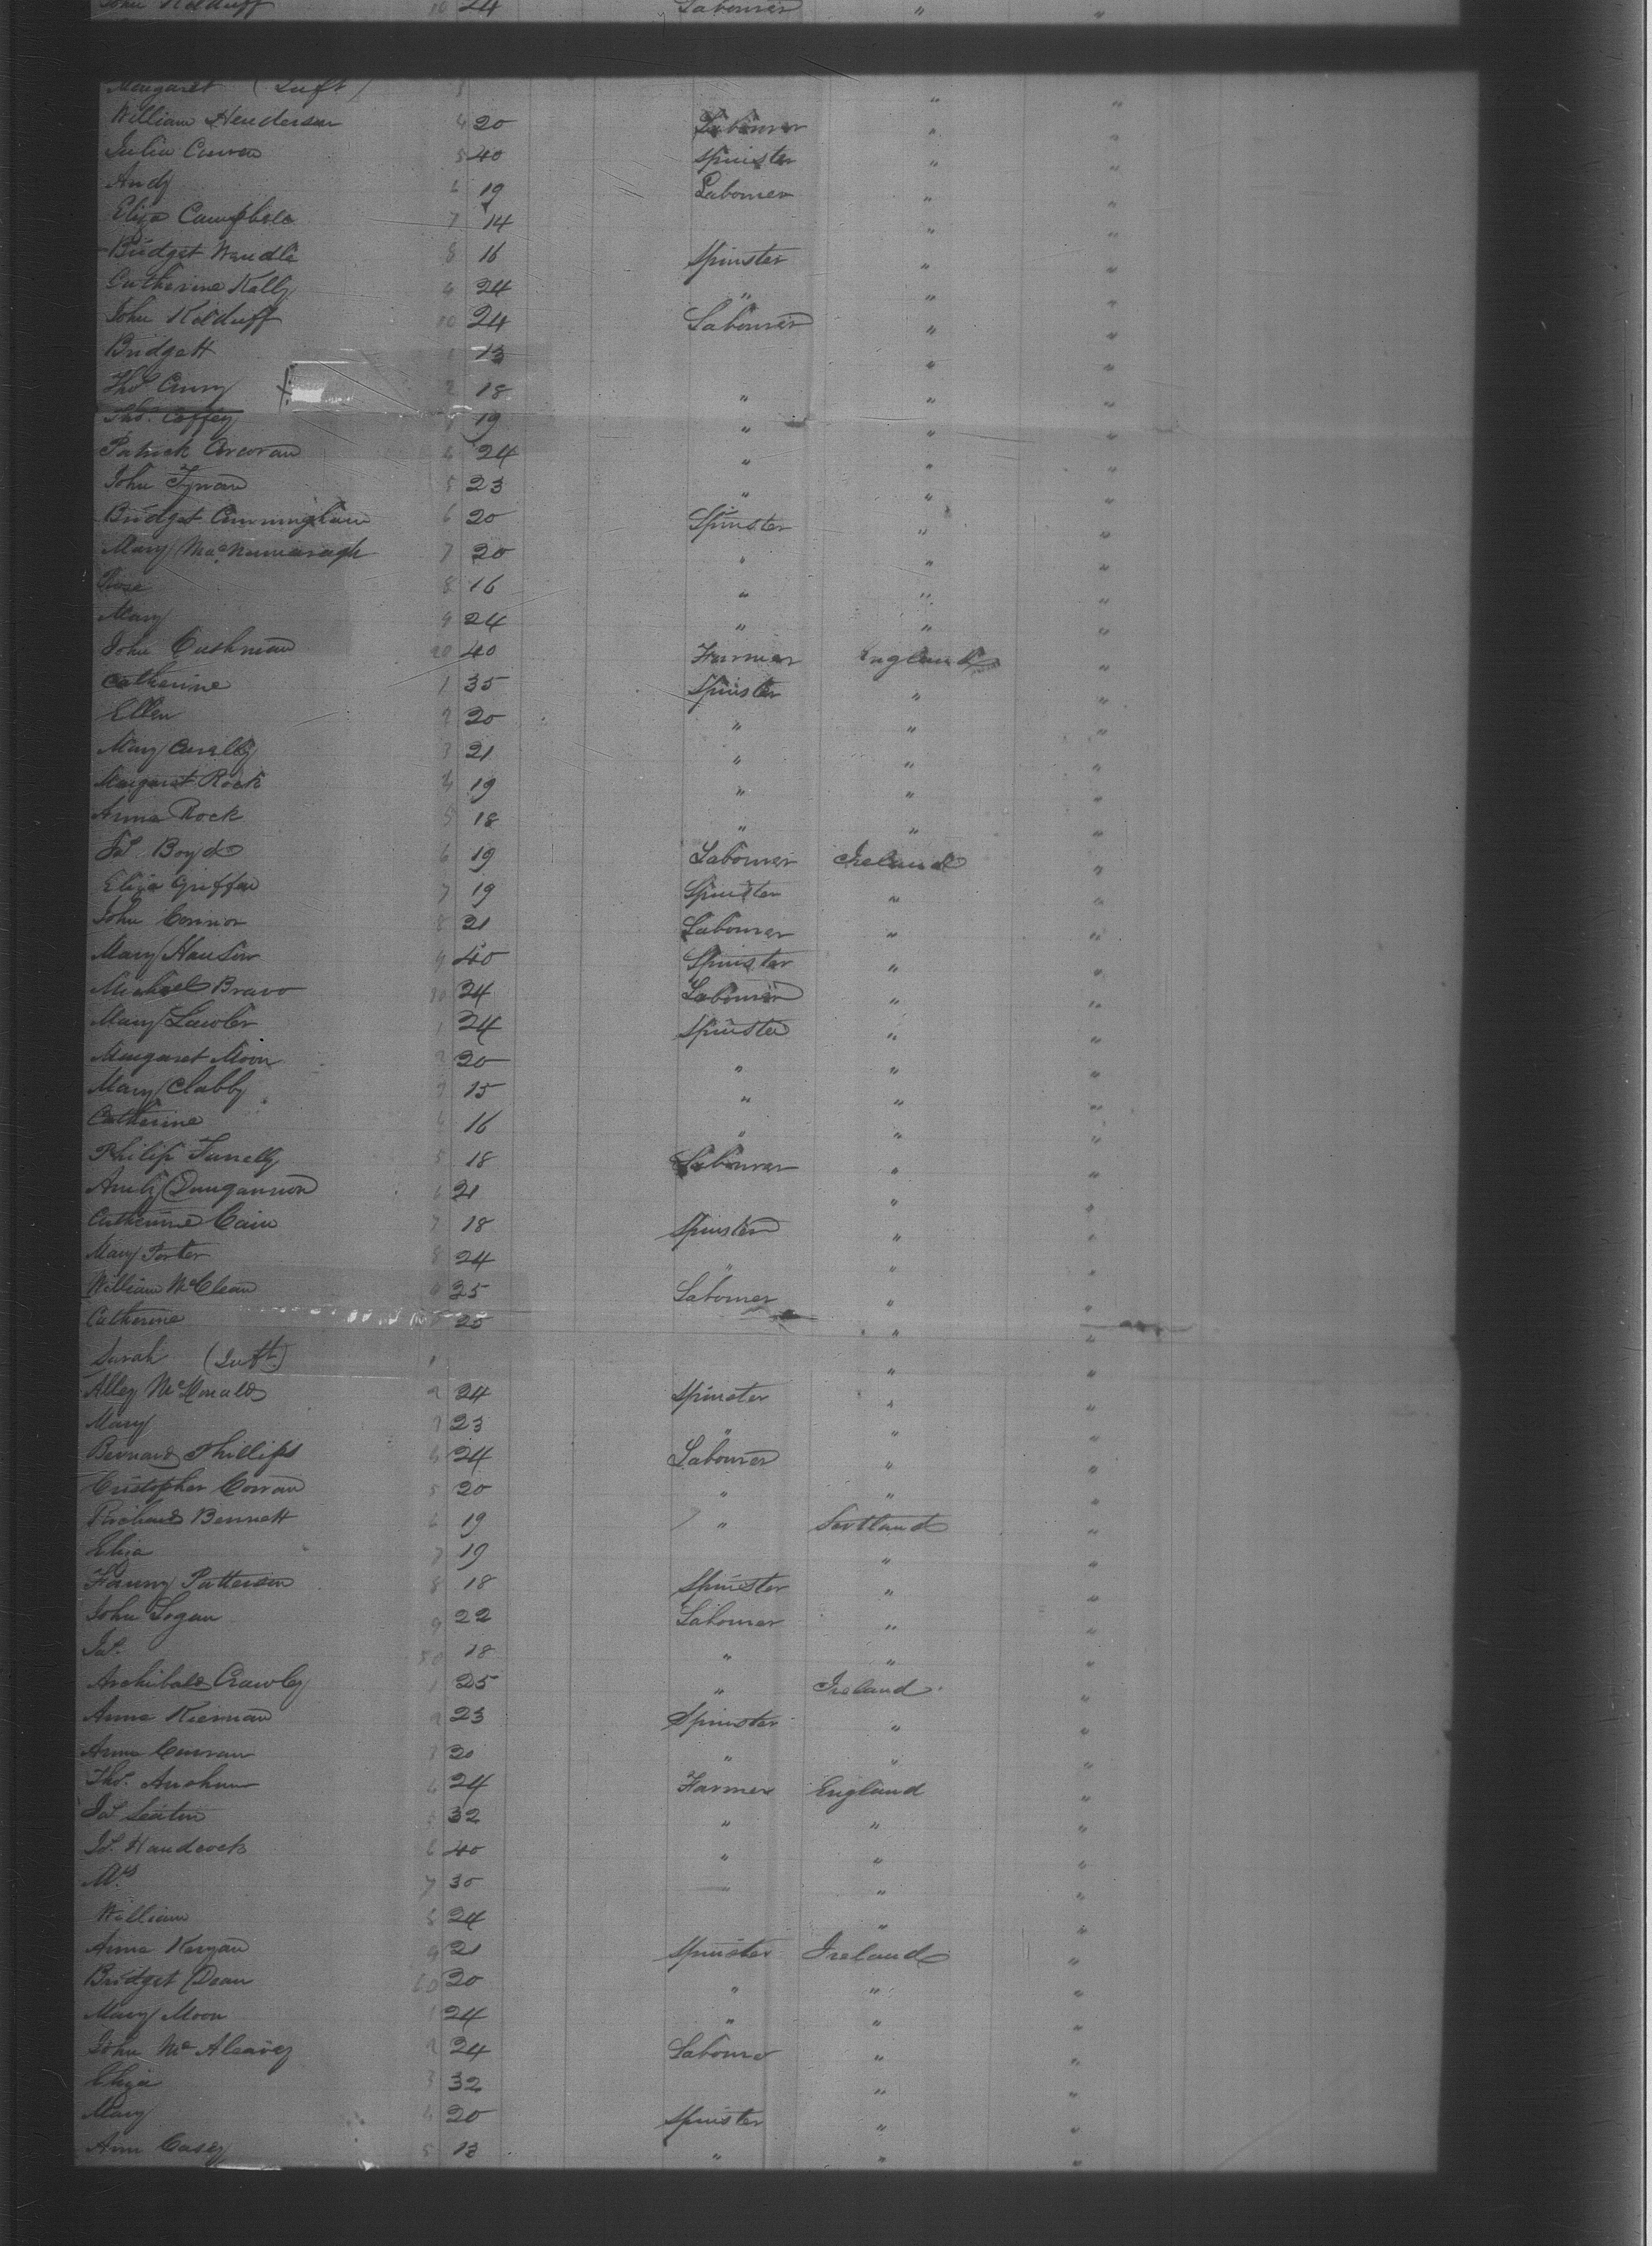 John Kilduff 10 24 Labourer " "
Margaret (Inft) " "
William Henderson 4 20 Labourer " "
Julia Curran 5 40 Spinster " "
Andy 6 19 Labourer " "
Eliza Campbell 7 14 " "
Bridget Wendle 8 16 Spinster " "
Catherine Kelly 9 24 " " "
John Kilduff 10 24 Labourer " "
Bridgett 1 13 " "
Thos Curry 2 18 " " "
Thos. Caffey 3 19 " " "
Patrick Corcoran 4 24 " " "
John Tynan 5 23 " " "
Bridget Cunningham 6 20 Spinster " "
Mary MacNamaragh 7 20 " " "
Rose 8 16 " " "
Mary 9 24 " " "
John Cushman 20 40 Farmer England "
Catherine 1 35 Spinster " "
Ellen 2 20 " " "
Mary 3 21 " " "
Margaret Rock 4 19 " " "
Anna Rock 5 18 " " "
Jas. Boyd 6 19 Labourer Ireland "
Eliza Griffin 7 19 Spinster " "
John Connor 8 21 Labourer " "
Mary 9 40 Spinster " "
Michael Bravo 30 24 Labourer " "
Mary Lawler 1 24 Spinster " "
Margaret Moon 2 20 " " "
Mary Clabby 3 15 " " "
Catherine 4 16 " " "
Philip Farrelly 5 18 Labourer " "
Dungannon 6 21 " "
Catherine Cain 7 18 Spinster " "
Mary Porter 8 24 " " "
William McClean 9 25 Labourer " "
Catherine 25 " "
Sarah (Inft) 1 " "
Alley McDonald 2 24 Spinster " "
Mary 3 23 " " "
Bernard Phillips 4 24 Labourer " "
Cristopher Corran 5 20 " " "
Richard Bennett 6 19 " Scotland "
Eliza 7 19 " "
Fanny Patterson 8 18 Spinster " "
John Logan 9 22 Labourer " "
Jas. 50 18 " " "
Archibald Crawley 1 25 " Ireland "
Anna Kiernan 2 23 Spinster " "
Anna Curran 3 20 " " "
Thos. 4 24 Farmer England "
Jas Seaton 5 32 " " "
Jas. Handcock 6 40 " " "
Mrs 7 30 " "
William 8 24 " "
Anna Keegan 9 21 Spinster Ireland "
Bridget Dean 60 20 " " "
Mary Moon 1 24 " " "
John McAleavey 2 24 Labourer " "
Eliza 3 32 " "
Mary 4 20 Spinster " "
Ann Casey 5 13 " " "